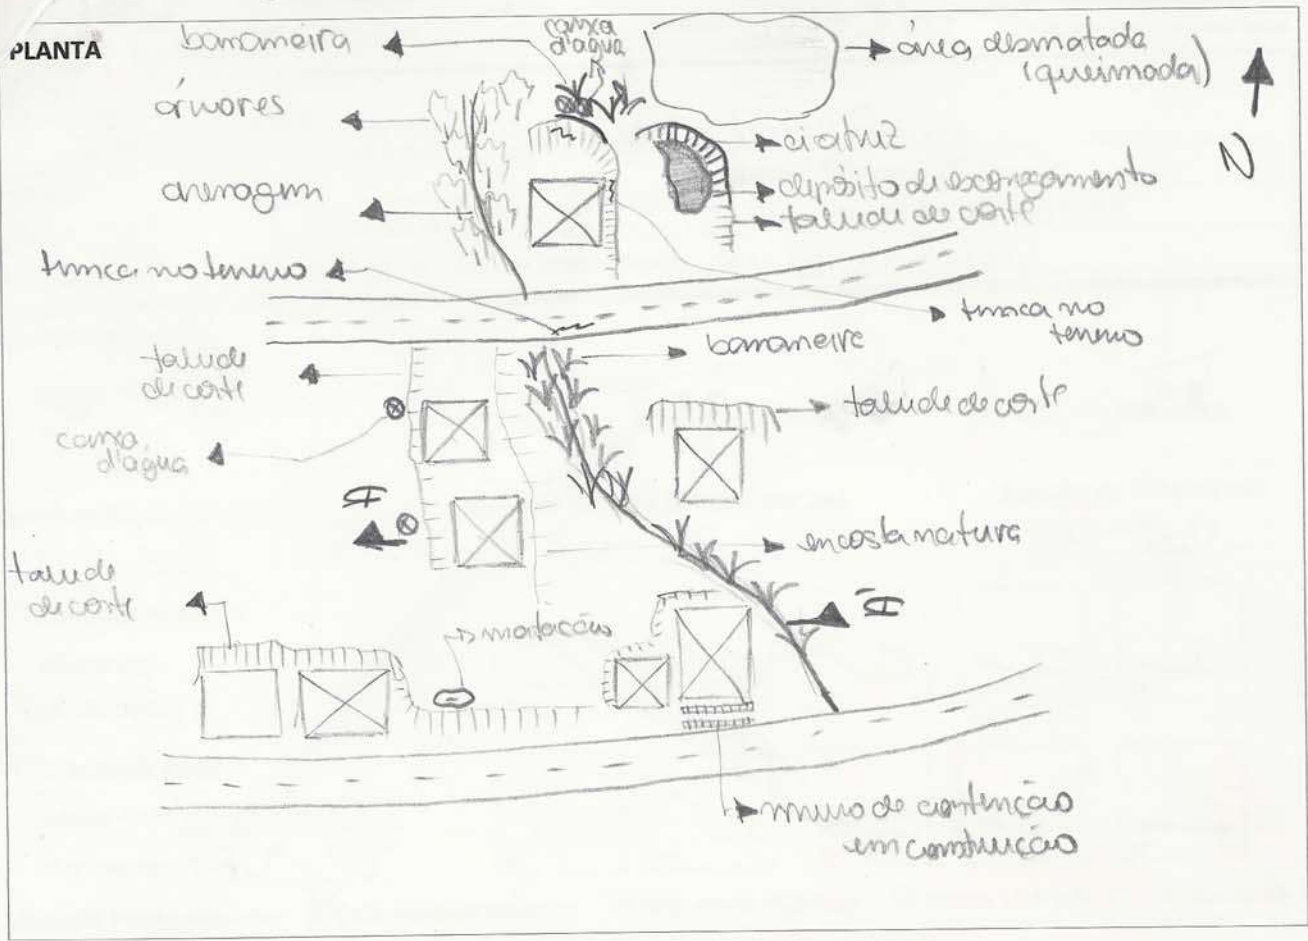 PLANTA
bananeira
caixa
d'água
área desmatada
(queimada)
árvores
cicatriz
N
drenagem
depósito de escorregamento
talude de corte
trinca no terreno
trinca no
terreno
bananeira
talude
de corte
talude de corte
caixa
d'água
encosta natura
talude
de corte
matacão
muro de contenção
em construção